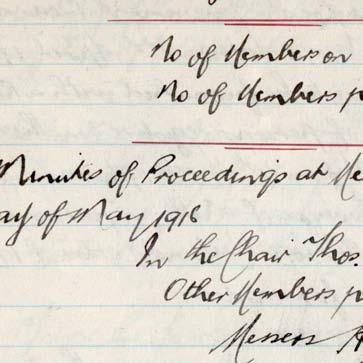 No of Members on
No of Members p
Minutes of Proceedings at Me
ay of May 1916
In the Chair Thos.
Other Members p
Messers